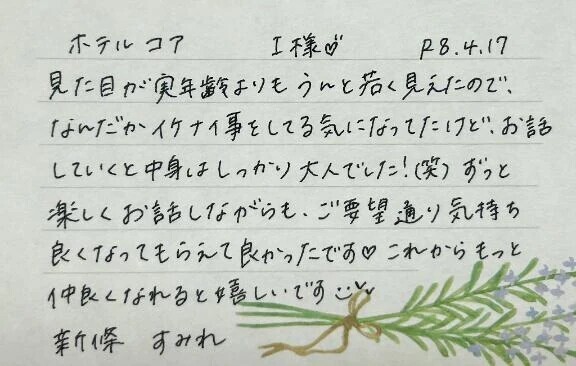 ホテル コア　I様♡　R8.4.17
見た目が実年齢よりもうんと若く見えたので、
なんだかイケナイ事をしてる気になってたけど、お話
していくと中身はしっかり大人でした!(笑)ずっと
楽しくお話しながらも、ご要望通り気持ち
良くなってもらえて良かったです♡これからもっと
仲良くなれると嬉しいです
新條 すみれ